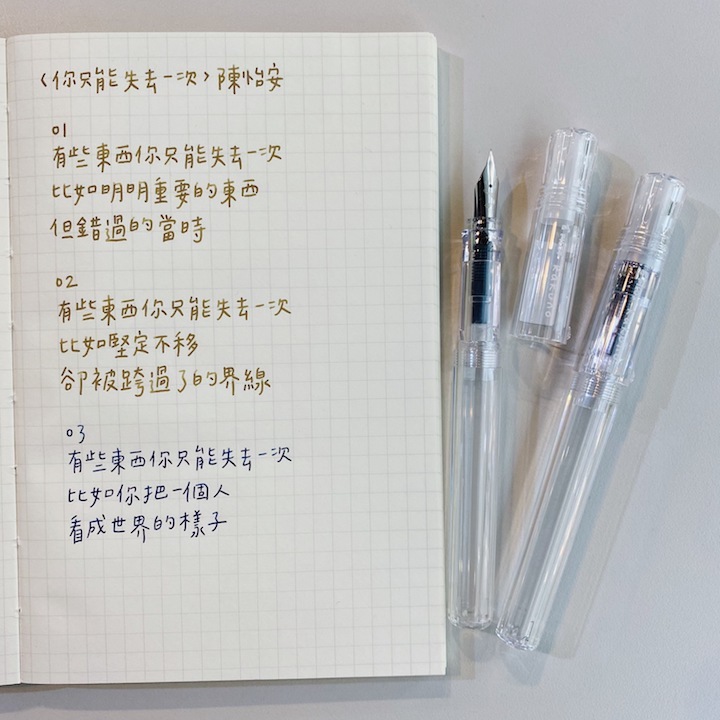 〈你只能失去一次〉陳怡安
01
有些東西你只能失去一次
比如明明重要的東西
但錯過的當時
02
有些東西你只能失去一次
比如堅定不移
卻被跨過了的界線
03
有些東西你只能失去一次
比如你把一個人
看成世界的樣子